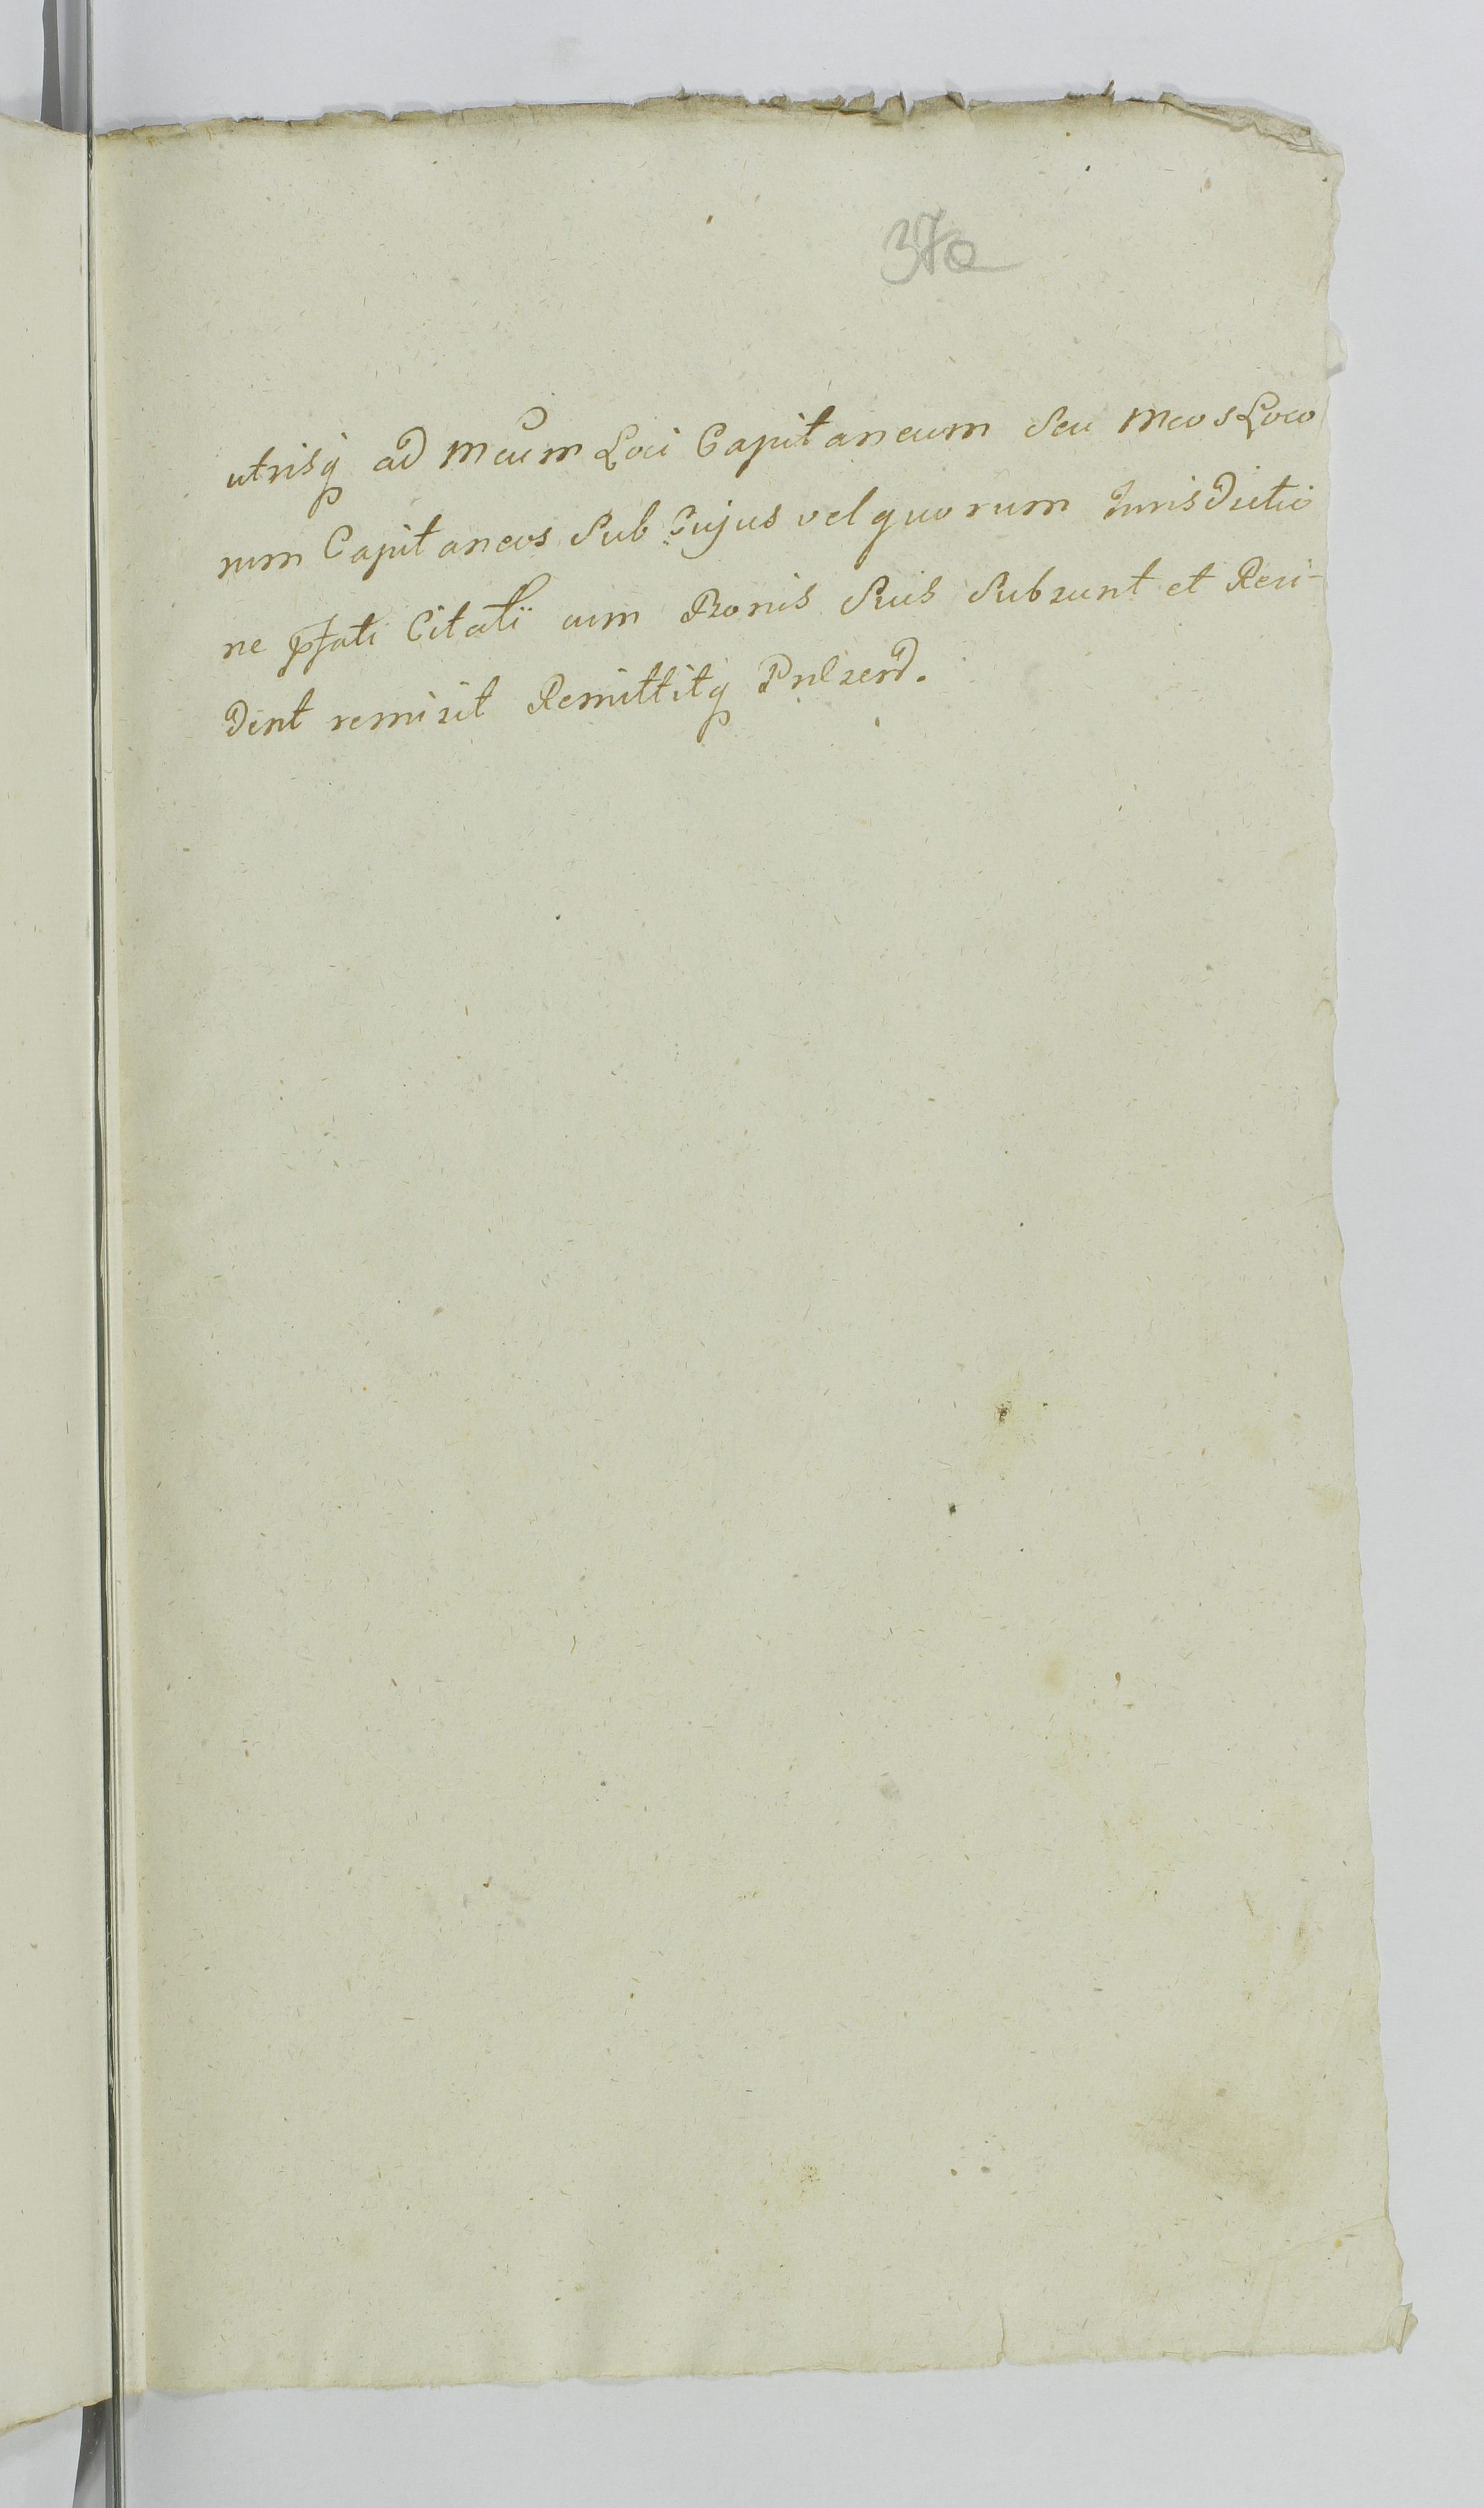 370
utrisq ad Meum Loci Capitaneum Seu Meos Loco
rum Capitaneos Sub Cujus vel quorum Jurisdictio
ne pfati Citatii cum Bonis Suis Subsunt et Resi-
dent remisit Remittitq